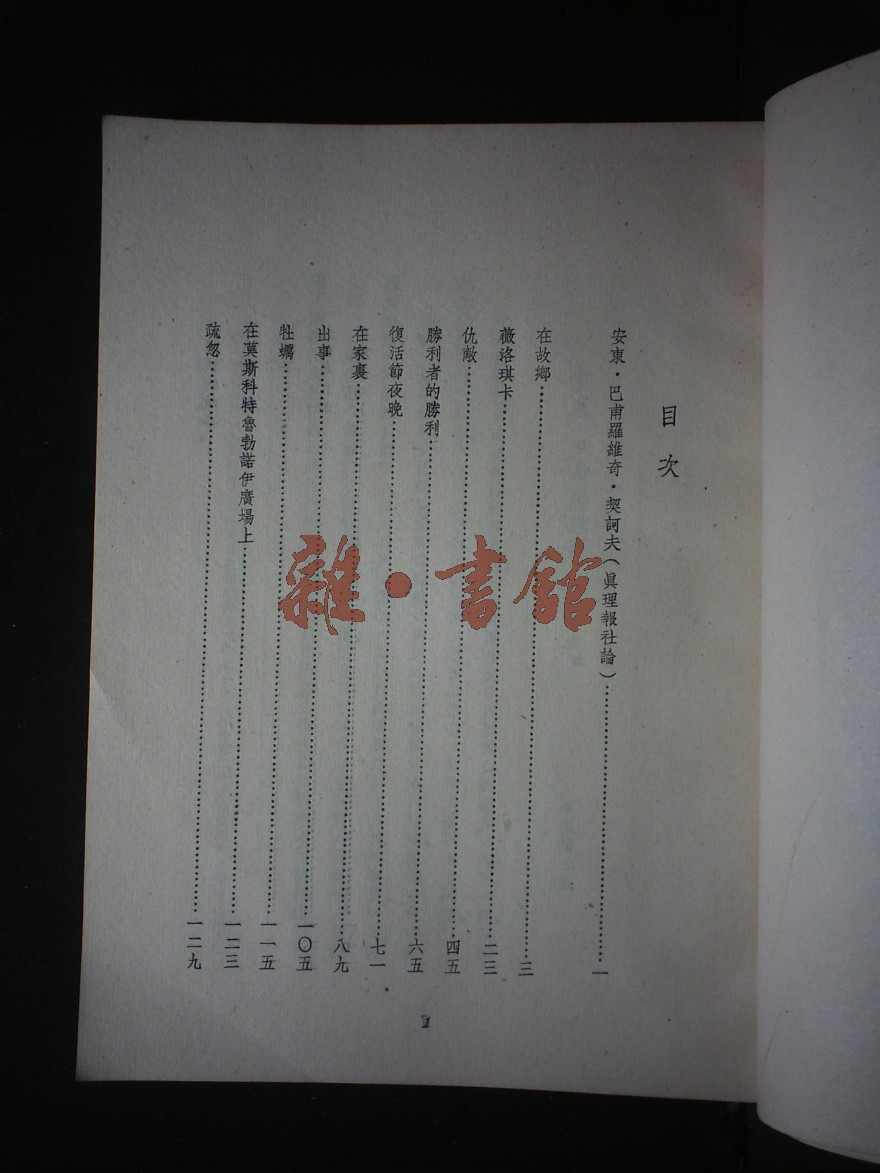 目次
安東・巴甫羅維奇・契訶夫(眞理報社論)……一
在故鄉……三
薇洛琪卡……二三
仇敵……四五
勝利者的勝利……六五
復活節夜晚……七一
在家裏……八九
出事……一〇五
牡蠣……一一五
在莫斯科特魯勃諾伊廣場上……一二三
疏忽……一二九
1
雜・書館